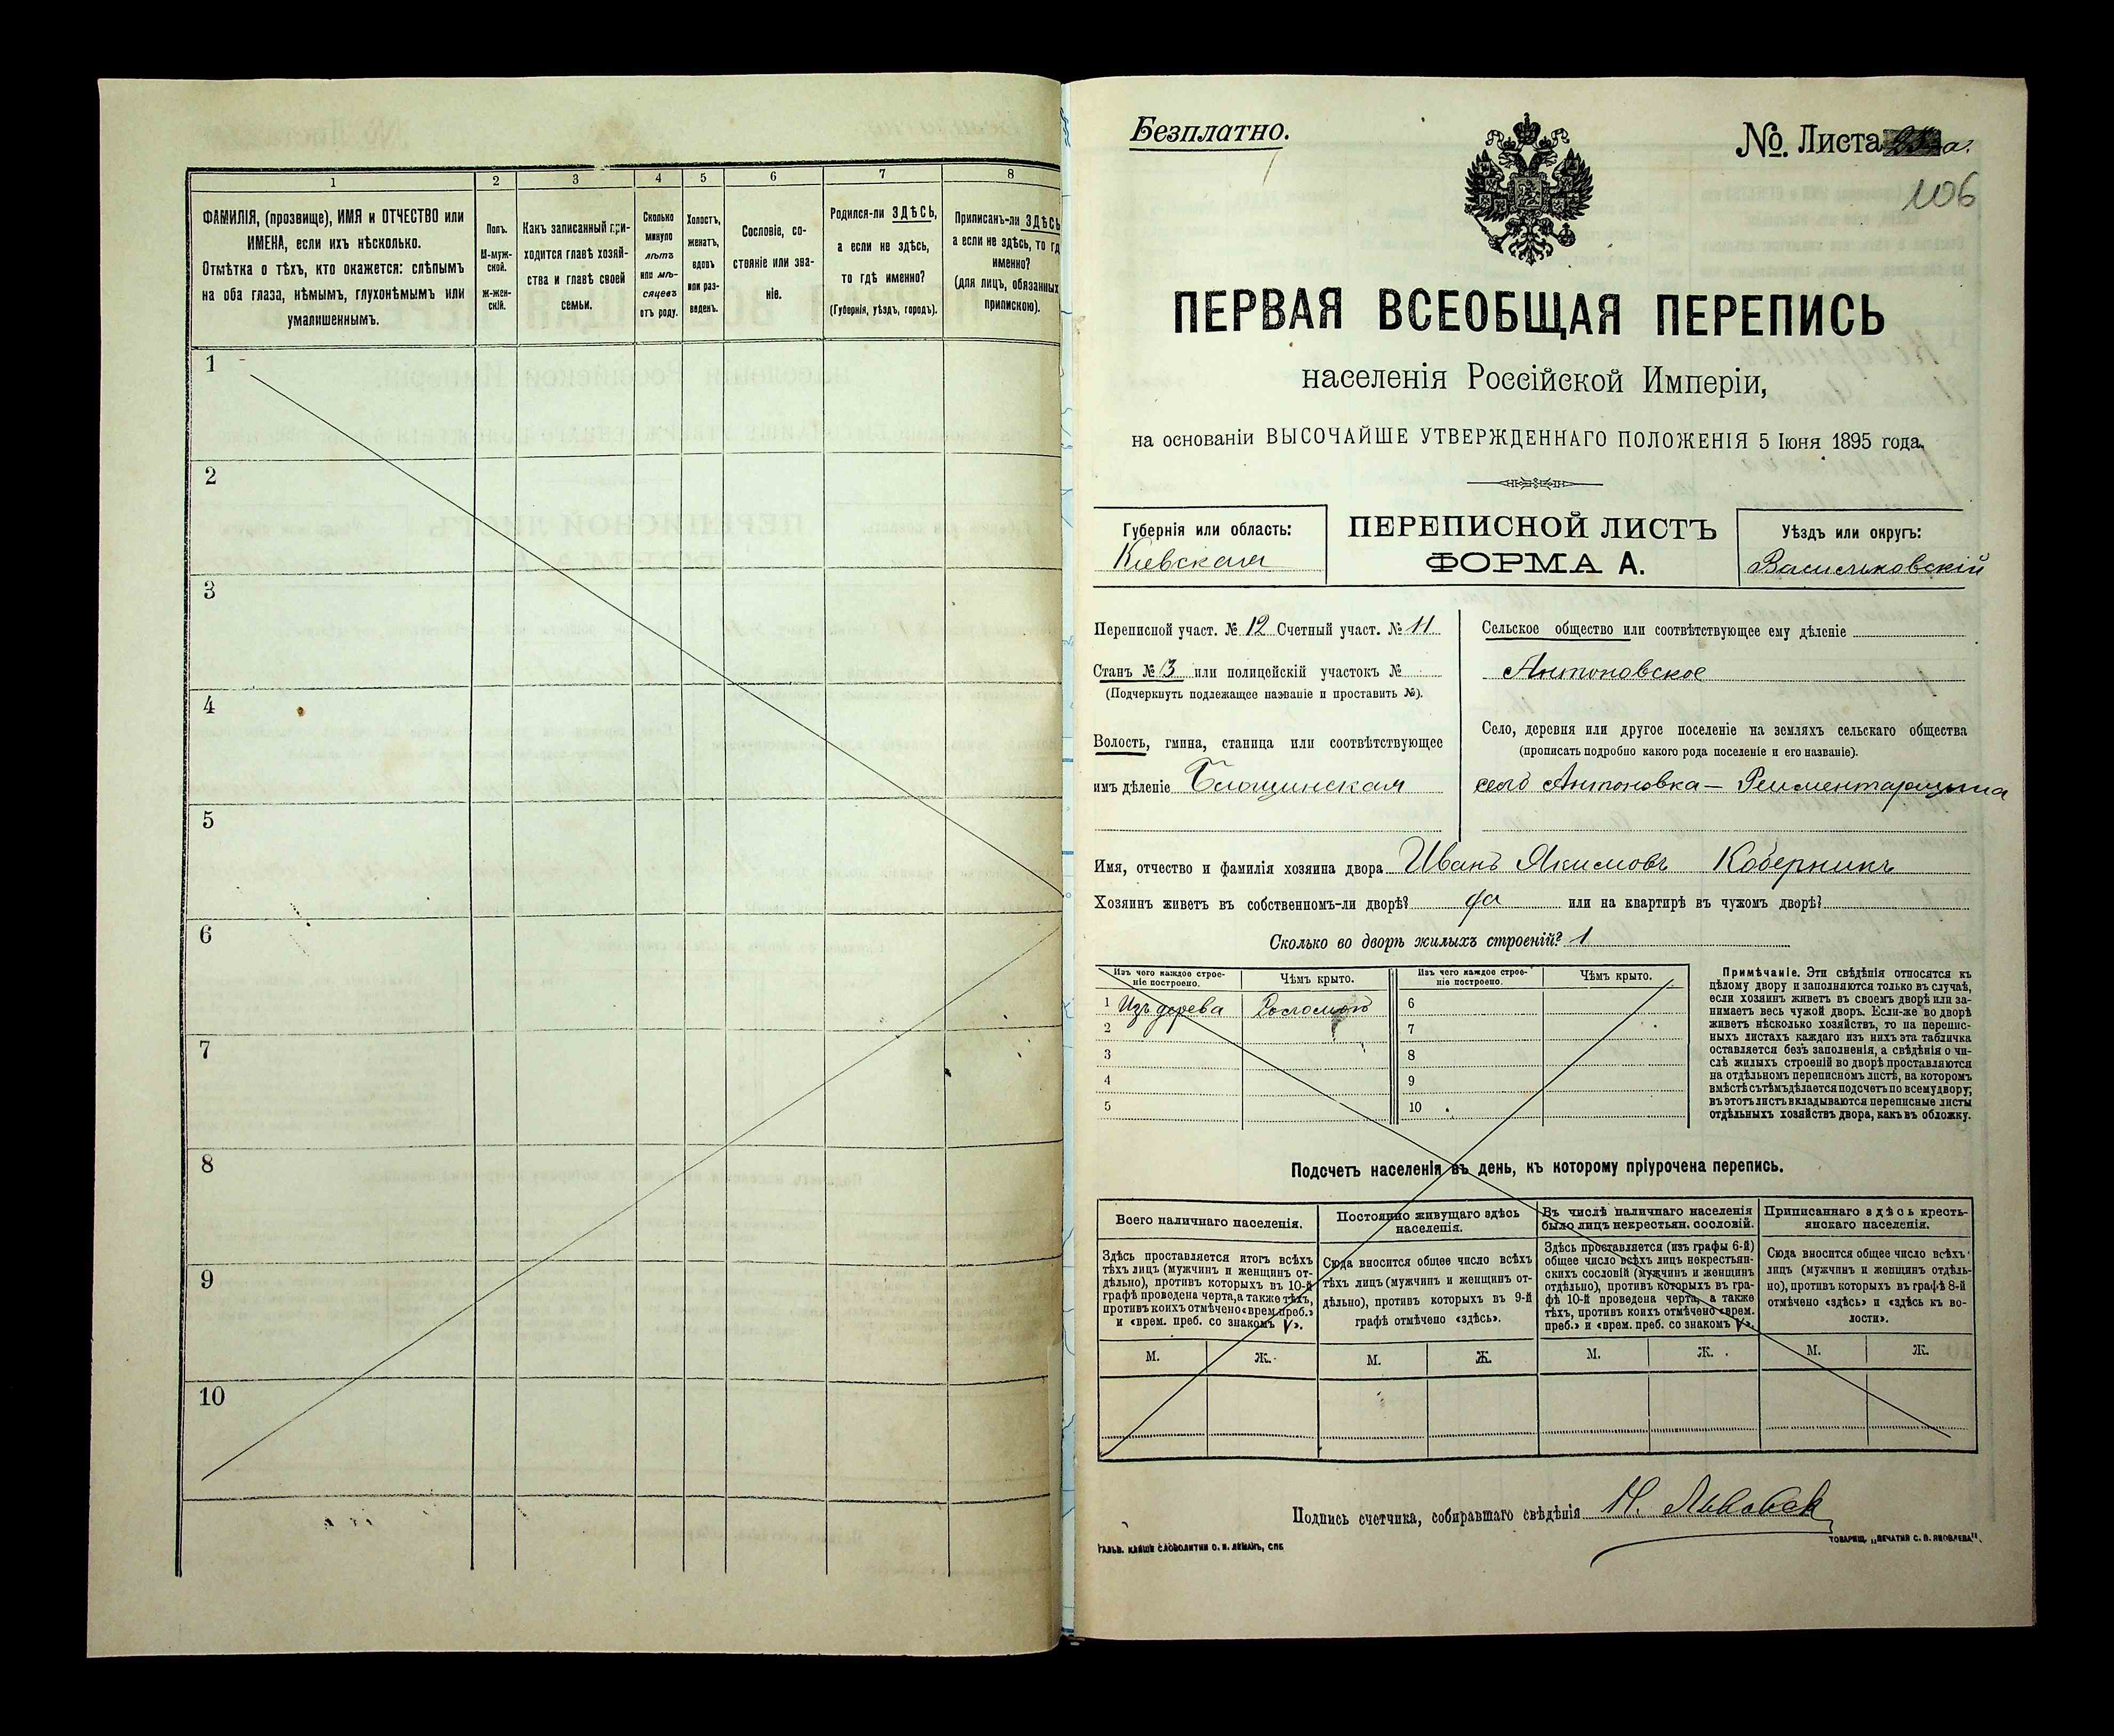 1
2
3
4
5
6
7
8
ФАМИЛІЯ, (прозвище), ИМЯ и ОТЧЕСТВО или
ИМЕНА, если ихъ нѣсколько.
Отмѣтка о тѣхъ, кто окажется: слѣпымъ
на оба глаза, нѣмымъ, глухонѣмымъ или
умалишеннымъ.
Полъ.
М-муж-
ской.
Ж-жен-
скій.
Какъ записанный при-
ходится главѣ хозяй-
ства и главѣ своей
семьи.
Сколько
минуло
лѣтъ
или мѣ-
сяцевъ
отъ роду.
Холостъ,
женатъ,
вдовъ
или раз-
веденъ.
Сословіе, со-
стояніе или зва-
ніе.
Родился-ли ЗДѢСЬ,
а если не здѣсь,
то гдѣ именно?
(Губернія, уѣздъ, городъ).
Приписанъ-ли ЗДѢСЬ
а если не здѣсь, то гд
именно?
(для лицъ, обязанныхъ
припискою).
1
2
3
4
5
6
7
8
9
10
Безплатно.
№ Листа а.
106
ПЕРВАЯ ВСЕОБЩАЯ ПЕРЕПИСЬ
населенія Россійской Имперіи,
на основаніи ВЫСОЧАЙШЕ УТВЕРЖДЕННАГО ПОЛОЖЕНІЯ 5 Іюня 1895 года.
Губернія или область:
Кіевская
ПЕРЕПИСНОЙ ЛИСТЪ
ФОРМА А.
Уѣздъ или округъ:
Васильковскій
Переписной участ. № 12 Счетный участ. № 11
Станъ № 3 или полицейскій участокъ №
(Подчеркнуть подлежащее названіе и проставить №).
Волость, гмина, станица или соотвѣтствующее
имъ дѣленіе
Сельское общество или соотвѣтствующее ему дѣленіе
Антоновское
Село, деревня или другое поселеніе на земляхъ сельскаго общества
(прописать подробно какого рода поселеніе и его названіе).
село Антоновка — Рейментарщина
Имя, отчество и фамилія хозяина двора Иванъ Якимовъ Коберникъ
Хозяинъ живетъ въ собственномъ-ли дворѣ? да или на квартирѣ въ чужомъ дворѣ?
Сколько во дворѣ жилыхъ строеній? 1
Изъ чего каждое строе-
ніе построено.
Чѣмъ крыто.
Изъ чего каждое строе-
ніе построено.
Чѣмъ крыто.
1 Изъ дерева
6
2
7
3
8
4
9
5
10
Примѣчаніе. Эти свѣдѣнія относятся къ
цѣлому двору и заполняются только въ случаѣ,
если хозяинъ живетъ въ своемъ дворѣ или за-
нимаетъ весь чужой дворъ. Если-же во дворѣ
живетъ нѣсколько хозяйствъ, то на перепис-
ныхъ листахъ каждаго изъ нихъ эта табличка
оставляется безъ заполненія, а свѣдѣнія о чи-
слѣ жилыхъ строеній во дворѣ проставляются
на отдѣльномъ переписномъ листѣ, на которомъ
вмѣстѣ съ тѣмъ дѣлается подсчетъ по всему двору;
въ этотъ листъ вкладываются переписные листы
отдѣльныхъ хозяйствъ двора, какъ въ обложку.
Подсчетъ населенія въ день, къ которому пріурочена перепись.
Всего наличнаго населенія.
Здѣсь проставляется итогъ всѣхъ
тѣхъ лицъ (мужчинъ и женщинъ от-
дѣльно), противъ которыхъ въ 10-й
графѣ проведена черта, а также тѣхъ,
противъ коихъ отмѣчено «врем. преб.»
и «врем. преб. со знакомъ V».
Постоянно живущаго здѣсь
населенія.
Сюда вносится общее число всѣхъ
тѣхъ лицъ (мужчинъ и женщинъ от-
дѣльно), противъ которыхъ въ 9-й
графѣ отмѣчено «здѣсь».
Въ числѣ наличнаго населенія
было лицъ некрестьян. сословій.
Здѣсь проставляется (изъ графы 6-й)
общее число всѣхъ лицъ некрестьян-
скихъ сословій (мужчинъ и женщинъ
отдѣльно), противъ которыхъ въ гра-
фѣ 10-й проведена черта, а также
тѣхъ, противъ коихъ отмѣчено «врем.
преб.» и «врем. преб. со знакомъ V».
Приписаннаго здѣсь кресть-
янскаго населенія.
Сюда вносится общее число всѣхъ
лицъ (мужчинъ и женщинъ отдѣль-
но), противъ которыхъ въ графѣ 8-й
отмѣчено «здѣсь» и «здѣсь къ во-
лости».
М.
Ж.
М.
Ж.
М.
Ж.
М.
Ж.
Подпись счетчика, собиравшаго свѣдѣнія Н.
ТОВАРИЩ. „ПЕЧАТНЯ С. П. ЯКОВЛЕВА".